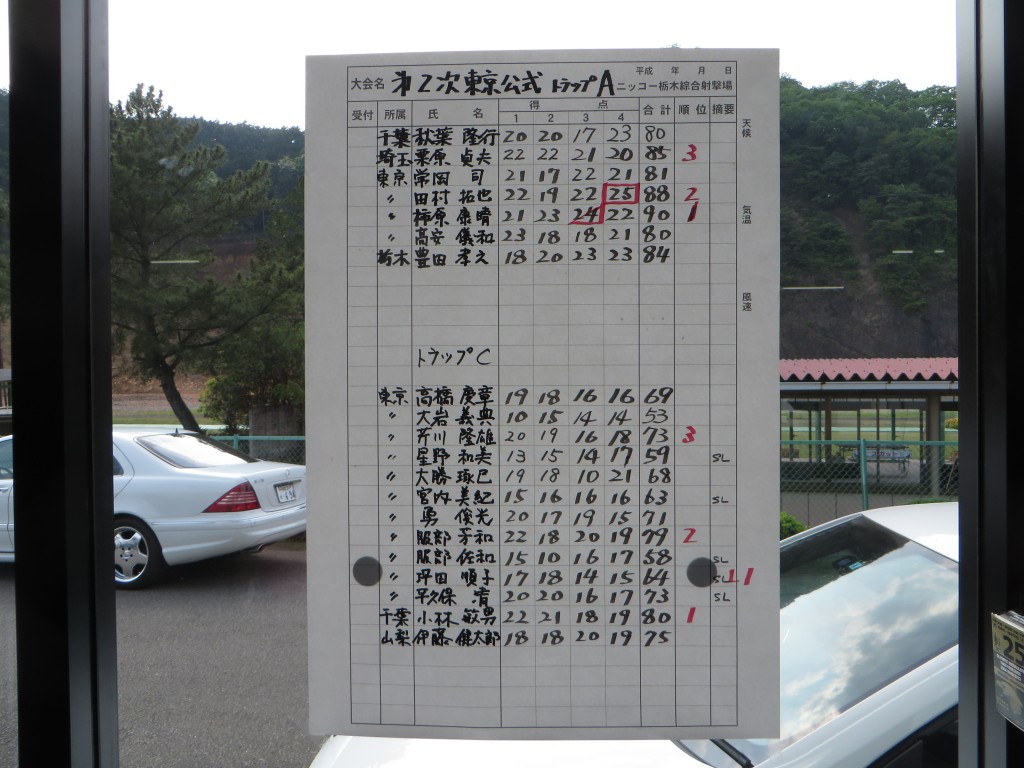 平成 年 月 日
大会名 第2次東京公式 トラップA ニッコー栃木綜合射撃場
受付 所属 氏 名 得 点 合計 順位 摘要
1 2 3 4
天候
千葉 秋葉 隆行 20 20 17 23 80
埼玉 栗原 貞夫 22 22 21 20 85 3
東京 常岡 司 21 17 22 21 81
〃 田村 拓也 22 19 22 25 88 2
〃 柿原 康晴 21 23 24 22 90 1
気温
〃 高安 儀和 23 18 18 21 80
栃木 豊田 孝久 18 20 23 23 84
風速
トラップC
東京 高橋 慶章 19 18 16 16 69
〃 大岩 義典 10 15 14 14 53
〃 芥川 隆雄 20 19 16 18 73 3
〃 星野 和夫 13 15 14 17 59 SL
〃 大勝 琢巳 19 18 10 21 68
〃 宮内 美紀 15 16 16 16 63 SL
〃 勇 俊光 20 17 19 15 71
〃 服部 芳和 22 18 20 19 79 2
〃 服部 佐和 15 10 16 17 58 SL
〃 坪田 順子 17 18 14 15 64 SL
〃 平久保 清 20 20 16 17 73 SL
千葉 小林 敏男 22 21 18 19 80 1
山梨 伊藤 健太郎 18 18 20 19 75
25